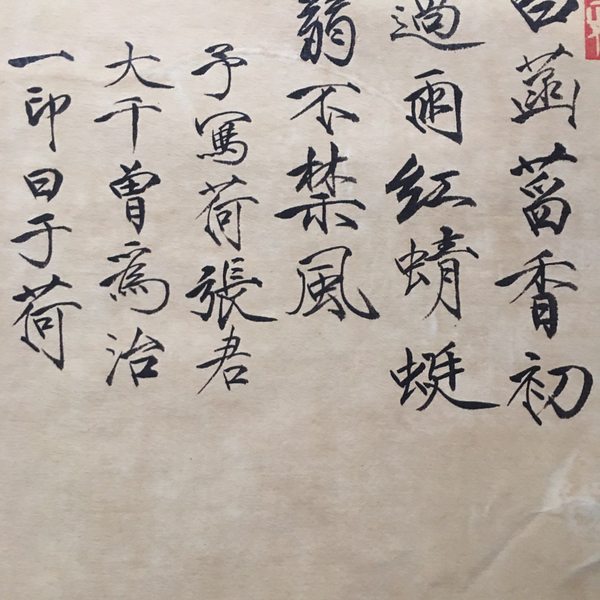 白菡萏香初
過雨紅蜻蜓
弱不禁風
予寫荷張君
大千曾為治
一印曰于荷